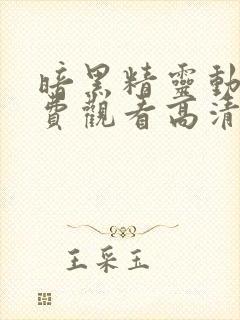 暗黑精靈動
費觀看高清
王采玉